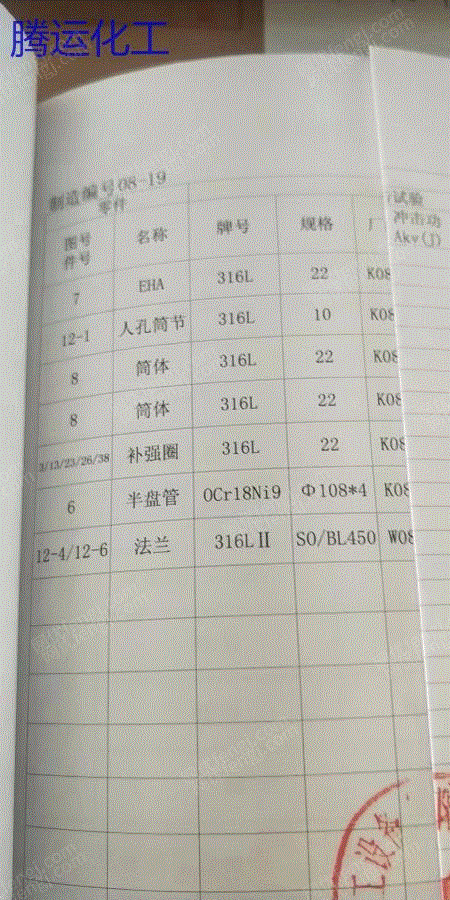 腾运化工
制造编号08-19
零件
试验
图号 名称 牌号 规格 冲击功
件号 Akv(J)
7 EHA 316L 22 K08
12-1 人孔筒节 316L 10 K08
8 筒体 316L 22 K08
8 筒体 316L 22 K08
3/13/23/26/38 补强圈 316L 22 K08
6 半盘管 0Cr18Ni9 Φ108*4 K08
12-4/12-6 法兰 316LⅡ SO/BL450 W08
工设